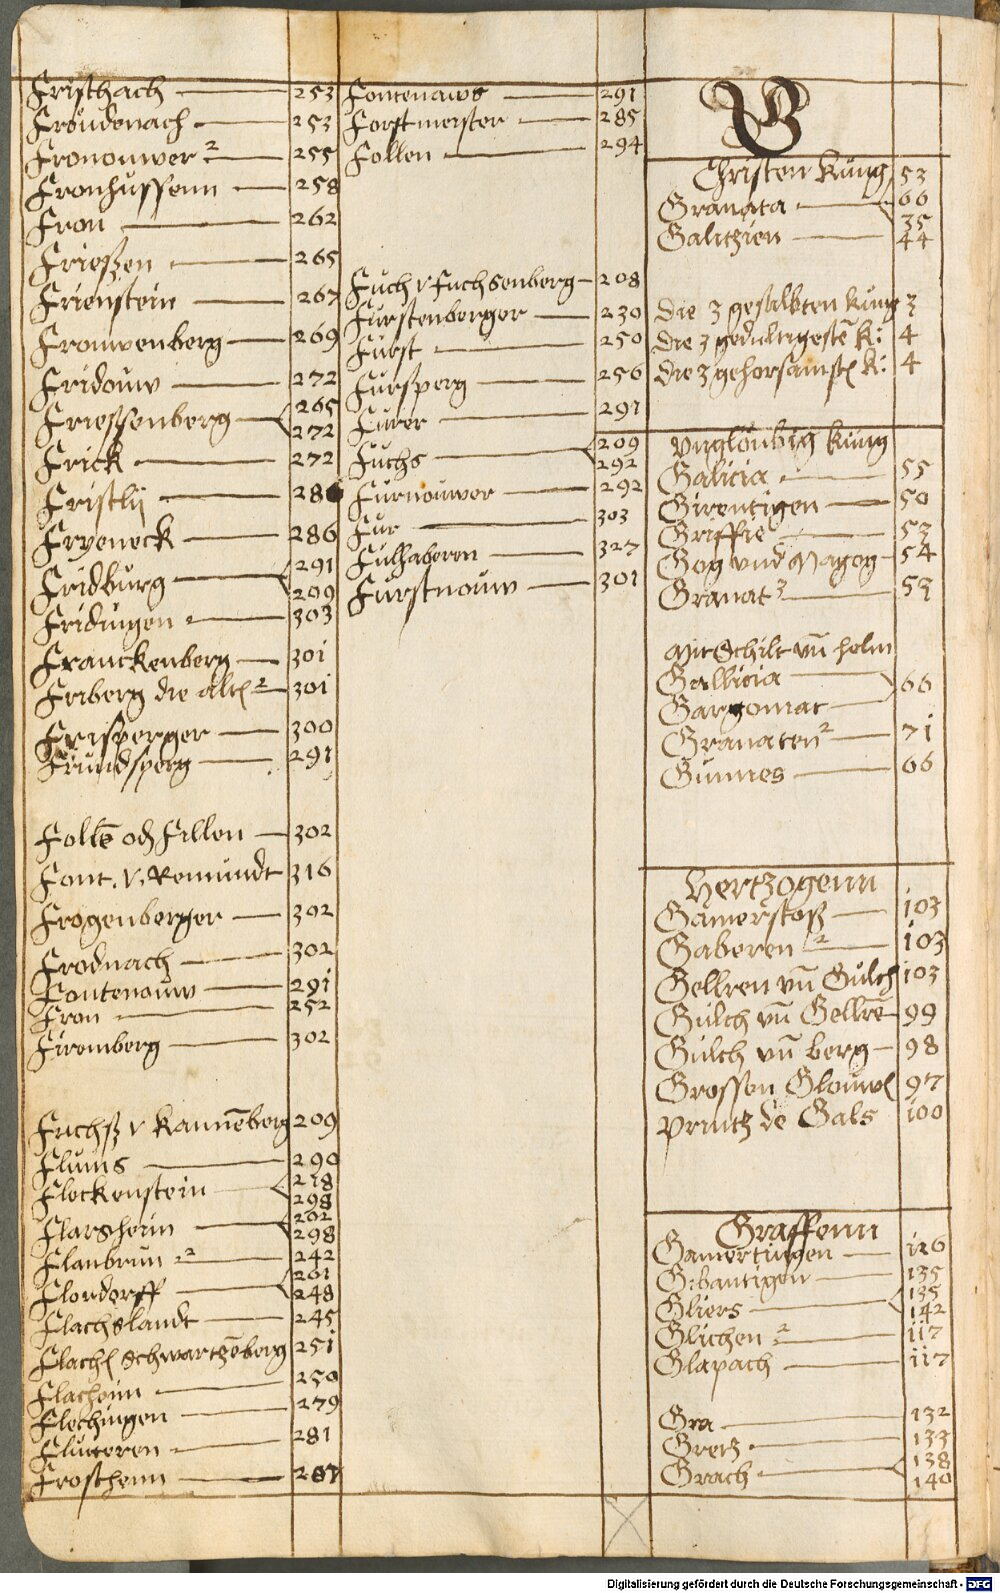 Fristhach 253
Fröudenach 253
Fronouwer 2 255
Fronhussenn 258
Fron 262
Frießen 265
Frienstein 267
Frouwenberg 269
Fridouw 272
Friessenberg 265
272
Frick 272
Fristly 28
Fryeneck 286
Fridburg 291
299
Fridingen 303
Franckenberg 301
Friberg die alt 2 301
Frisperger 300
Frundsperg 291
Folke od Fillen 302
Font. v. Remundt 316
Frogenberger 302
Frodnach 302
Fontenouw 291
Fron 252
Firomberg 302
Fuchß v Kannēberg 209
Flums 290
Fleckenstein 218
298
Flarsheim 202
298
Flanbrun 2 242
Flondorff 261
248
Flachslandt 245
Flach Schwartzēberg 251
Flachein 250
Flechingen 279
Flutteren 281
Froschenn 287
Fontenaws 291
Forstmeister 285
Follen 294
Fuch v Fuchsenberg 208
Furstenberger 230
Furst 250
Fursperg 256
Furer 291
Fuchs 209
292
Furnouwer 292
Fur 303
Fulhaberen 327
Furstnouw 301
G
Christen Kung 53
Granata 66
35
Galitzien 44
Die 3 gesalbten kung 3
Die 3 gedultigestē K: 4
Die 3 gehorsamst K: 4
Vnglöubig Kung
Galicia 55
Girentigen 50
Griffie 53
Gog vnd Magog 54
Granat 3 59
Mit Schilt vn̄ helm
Gallicia 66
Gargomar
Granaten 2 71
Gunnes 66
Hertzogenn
Gamerstoß 103
Gaberen 2 103
Gellren vn̄ Gulch 103
Gulch vn̄ Gellrē 99
Gulch vn̄ berg 98
Grossen Glouw 97
Printz de Gals 100
Graffenn
Gamertingen 126
Gibantigen 135
Gliers 135
142
Glichen 2 117
Glapach 117
Gra 132
Gretz 133
Grach 138
140
Digitalisierung gefördert durch die Deutsche Forschungsgemeinschaft - DFG